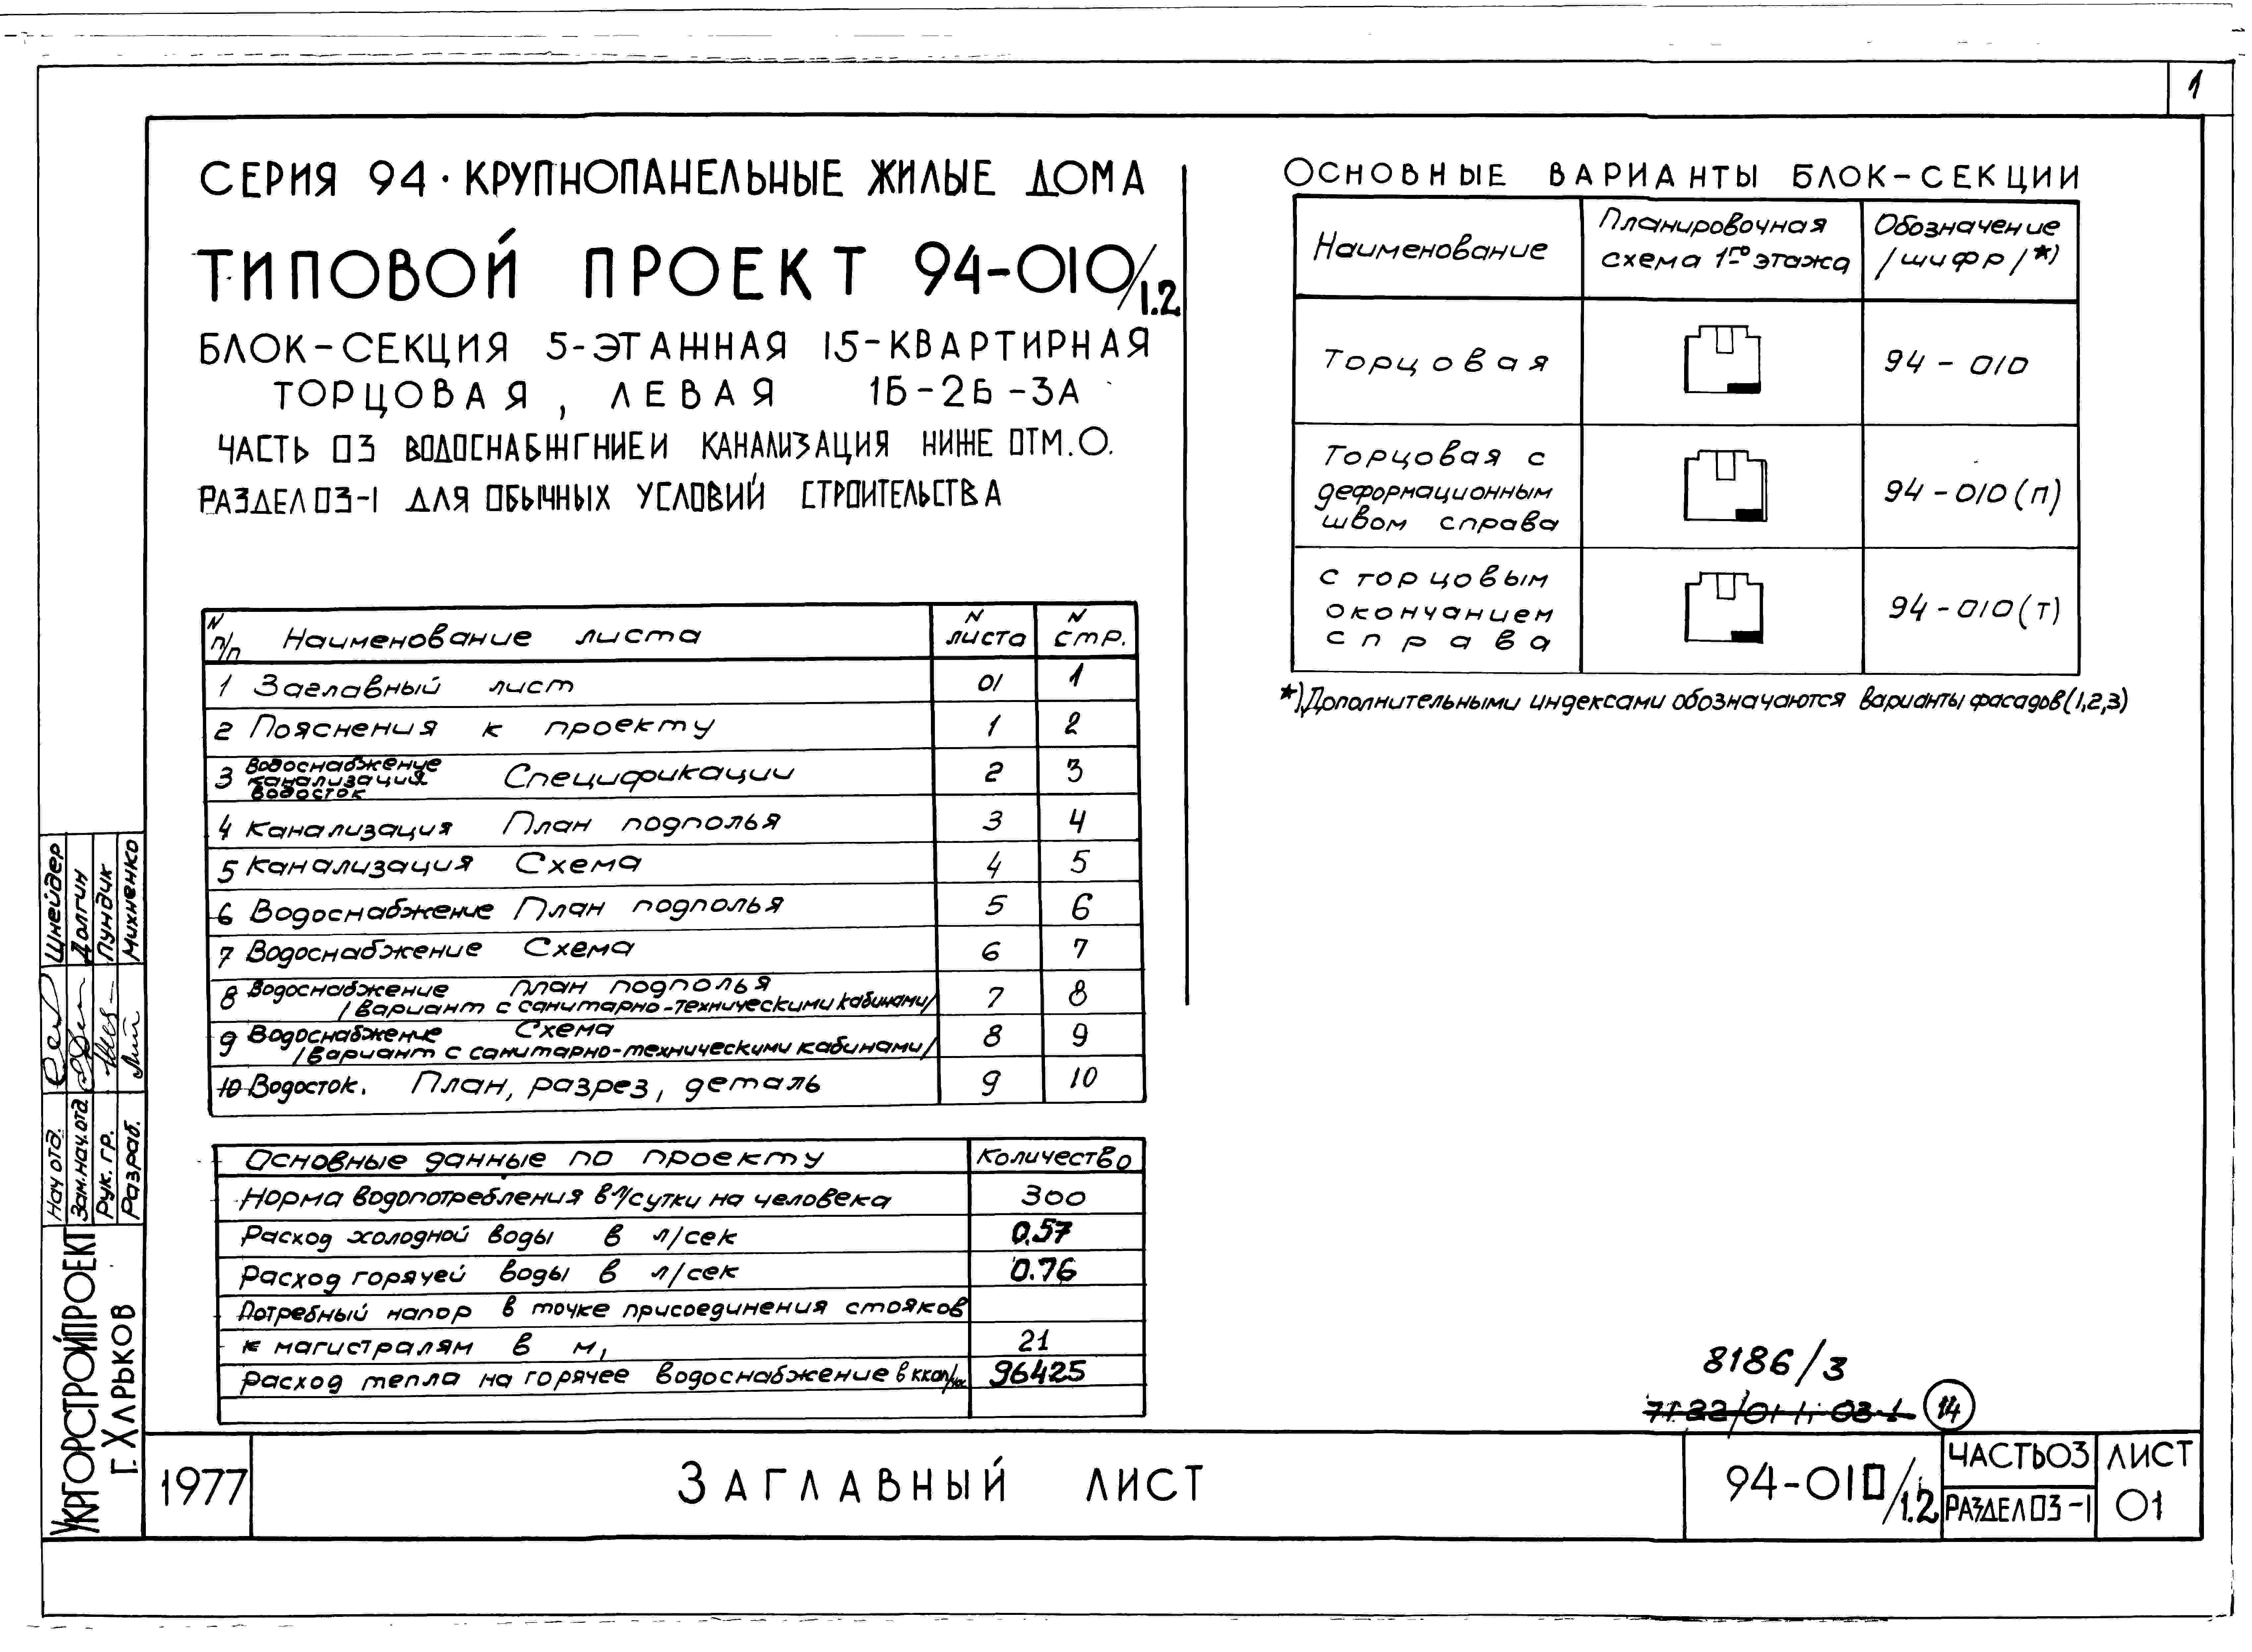 1
СЕРИЯ 94 · КРУПНОПАНЕЛЬНЫЕ ЖИЛЫЕ ДОМА
ТИПОВОЙ ПРОЕКТ 94-010/1.2
БЛОК-СЕКЦИЯ 5-ЭТАЖНАЯ 15-КВАРТИРНАЯ
ТОРЦОВАЯ, ЛЕВАЯ 1Б-2Б-3А
ЧАСТЬ 03 ВОДОСНАБЖГНИЕИ КАНАЛИЗАЦИЯ НИЖЕ ОТМ.О.
РАЗДЕЛ 03-1 ДЛЯ ОБЫЧНЫХ УСЛОВИЙ СТРОИТЕЛЬСТВА
N п/п Наименование листа N листа N стр.
1 Заглавный лист 01 1
2 Пояснения к проекту 1 2
3 Водоснабжение канализация водосток Спецификации 2 3
4 Канализация План подполья 3 4
5 Канализация Схема 4 5
6 Водоснабжение План подполья 5 6
7 Водоснабжение Схема 6 7
8 Водоснабжение план подполья 7 8
/вариант с санитарно-техническими кабинами/
9 Водоснабжение Схема 8 9
/вариант с санитарно-техническими кабинами/
10 Водосток. План, разрез, деталь 9 10
Основные данные по проекту Количество
Норма водопотребления в л/сутки на человека 300
Расход холодной воды в л/сек 0.57
Расход горячей воды в л/сек 0.76
Потребный напор в точке присоединения стояков
к магистралям в м, 21
Расход тепла на горячее водоснабжение в ккал/час 96425
ОСНОВНЫЕ ВАРИАНТЫ БЛОК-СЕКЦИИ
Наименование
Планировочная схема 1го этажа
Обозначение /шифр/*)
Торцовая 94-010
Торцовая с
деформационным
швом справа
94-010(П)
С торцовым
окончанием
справа
94-010(Т)
*) Дополнительными индексами обозначаются варианты фасадов(1,2,3)
8186/3
14
Нач отд. Шнейдер
Зам.нач.отд Долгин
Рук. гр. Пундик
Разраб. Михненко
УКРГОРСТРОЙПРОЕКТ
г. ХАРЬКОВ
1977
ЗАГЛАВНЫЙ ЛИСТ
94-010/1.2
ЧАСТЬ03
РАЗДЕЛ03-1
ЛИСТ
01